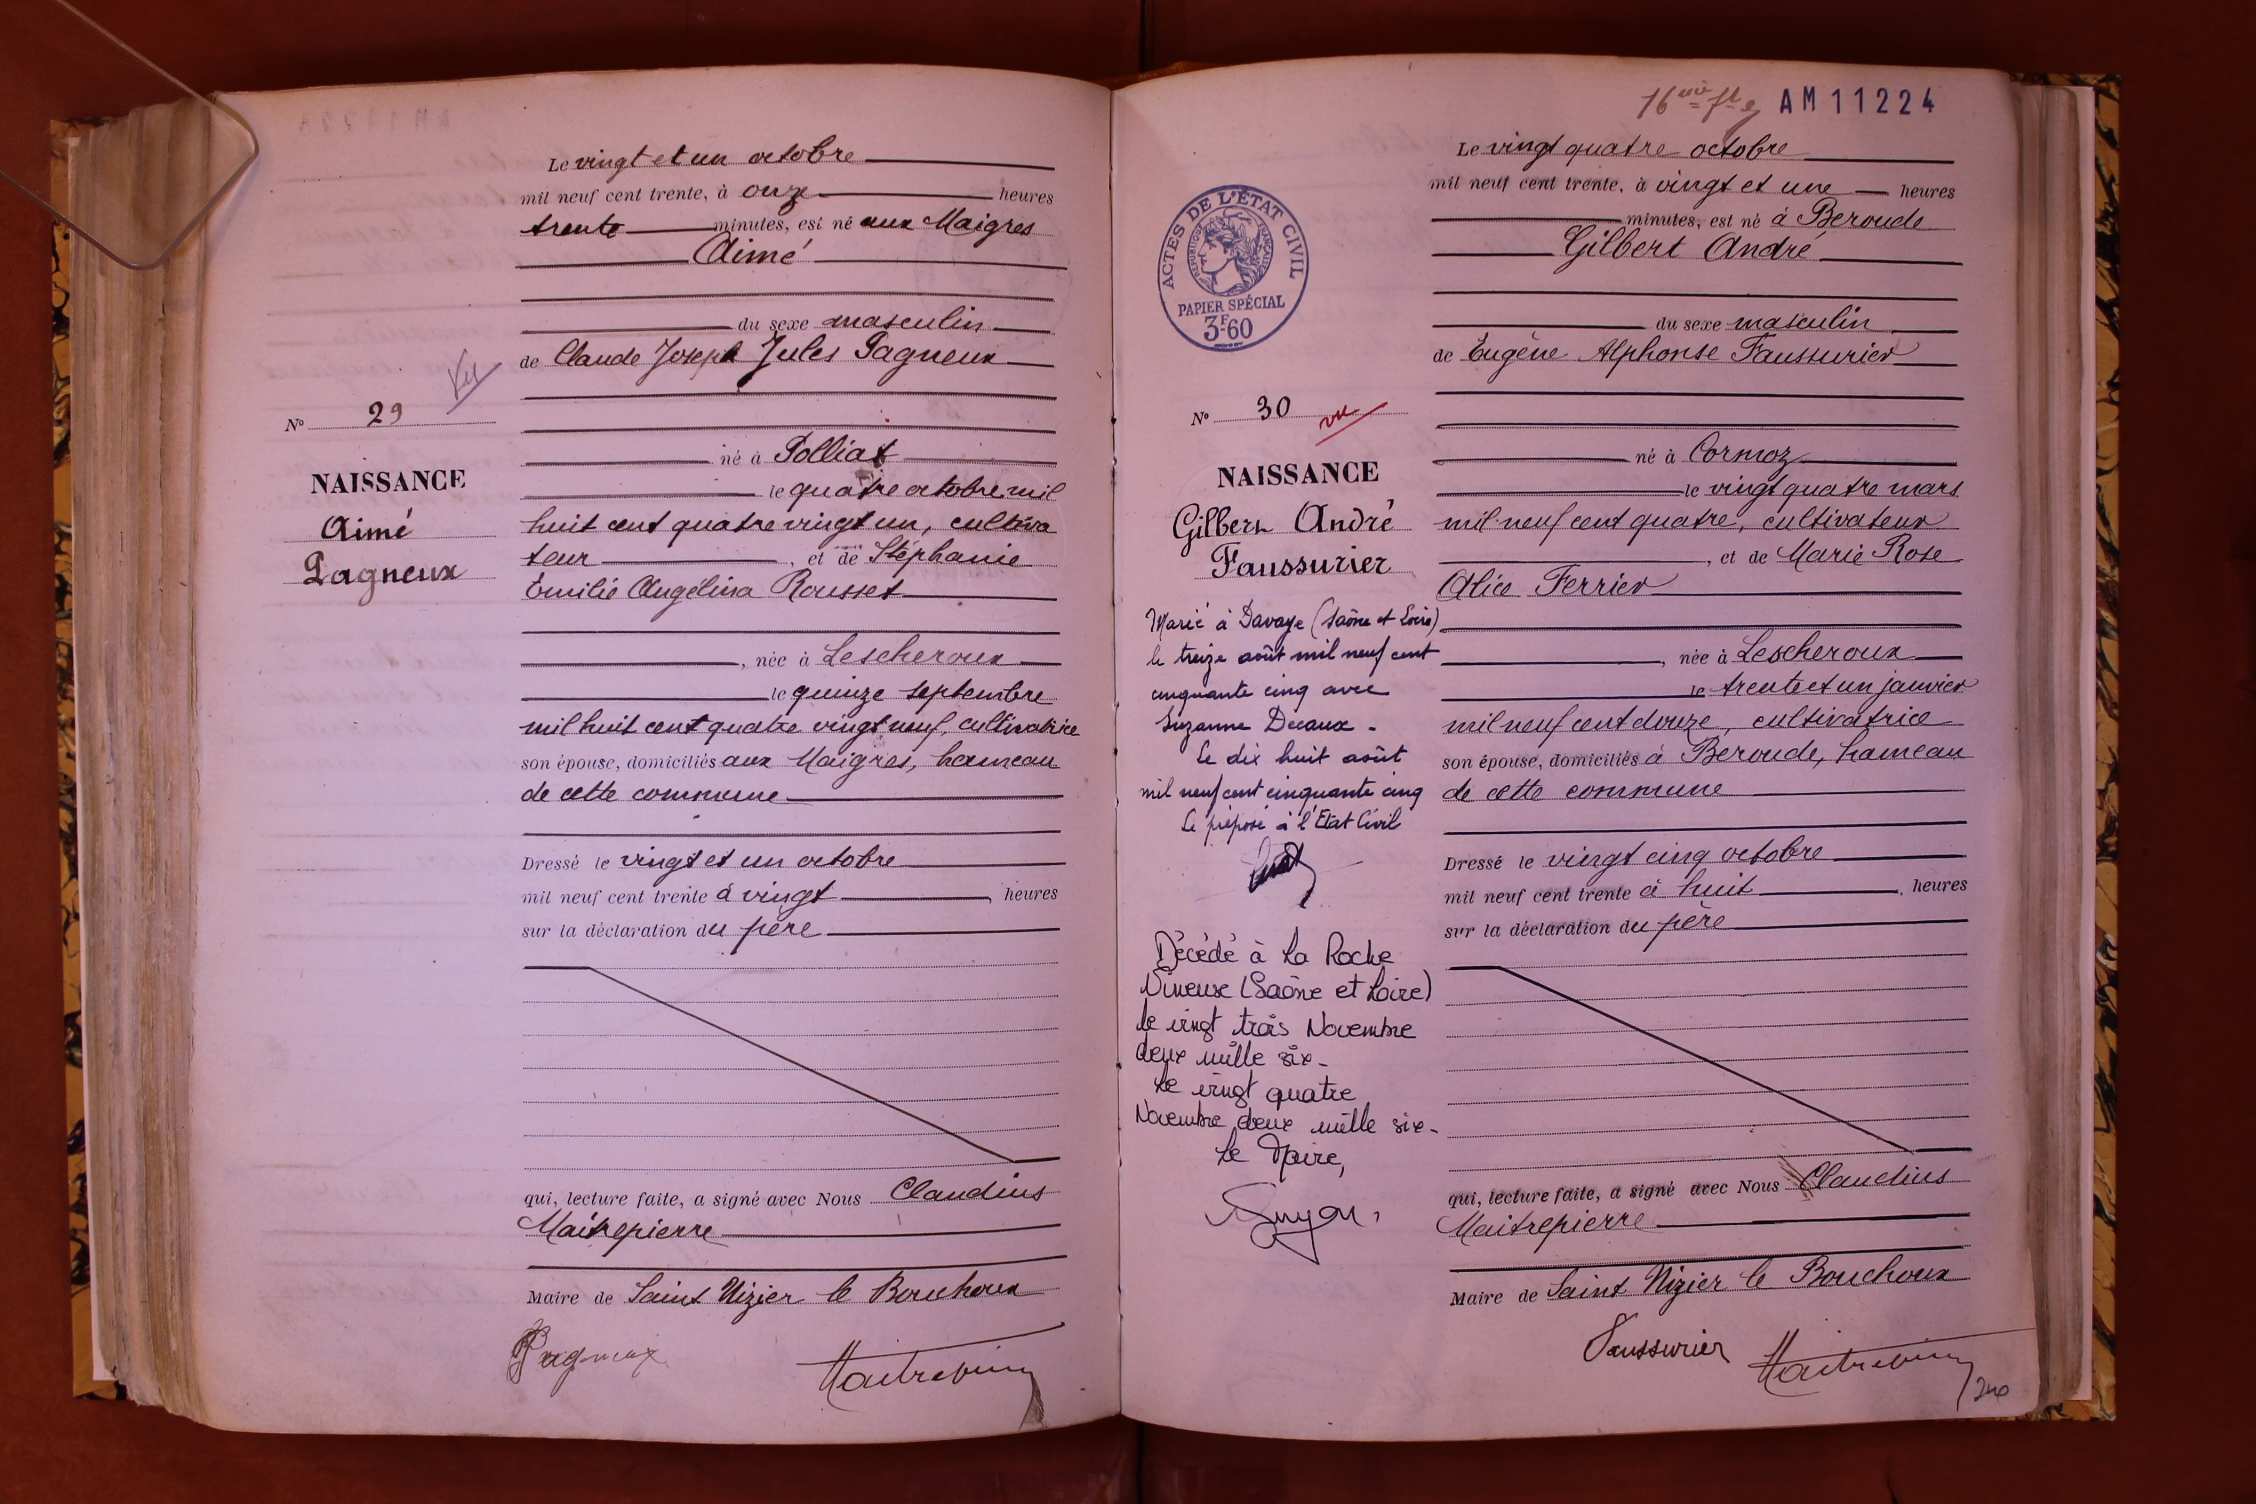 Le vingt et un octobre
mil neuf cent trente, à onze heures
trente minutes, est né aux Maigres
Aimé
du sexe masculin
de Claude Joseph Jules Pagneux
né à Polliat
le quatre octobre mil
huit cent quatre vingt un, cultiva
teur, et de Stéphanie
Emilie Angélina Rousset
, née à Lescheroux
le quinze septembre
mil huit cent quatre vingt neuf, cultivatrice
son épouse, domiciliés aux Maigres, hameau
de cette commune
Dressé le vingt et un octobre
mil neuf cent trente à vingt, heures
sur la déclaration du père
qui, lecture faite, a signé avec Nous Claudius
Maitrepierre
Maire de Saint Nizier le Bouchoux
Pagneux
Vu
N° 29
NAISSANCE
Aimé
Pagneux
AM11224
Le vingt quatre octobre
mil neuf cent trente, à vingt et une heures
minutes, est né à Beroude
Gilbert André
du sexe masculin
de Eugène Alphonse Faussurier
né à Cormoz
le vingt quatre mars
mil neuf cent quatre, cultivateur
, et de Marie Rose
Alice Ferrier
, née à Lescheroux
le trente et un janvier
mil neuf cent douze, cultivatrice
son épouse, domiciliés à Beroude, hameau
de cette commune
Dressé le vingt cinq octobre
mil neuf cent trente à huit, heures
sur la déclaration du père
qui, lecture faite, a signé avec Nous Claudius
Maitrepierre
Maire de Saint Nizier le Bouchoux
Faussurier
240
ACTES DE L'ÉTAT CIVIL
RÉPUBLIQUE FRANÇAISE
PAPIER SPÉCIAL
3F60
N° 30
vu
NAISSANCE
Gilbert André
Faussurier
Marié à Davaye (Saône et Loire)
le treize août mil neuf cent
cinquante cinq avec
Suzanne Decaux -
Le dix huit août
mil neuf cent cinquante cinq
Le préposé à l'Etat Civil
Décédé à La Roche
Vineuse (Saône et Loire)
le vingt trois Novembre
deux mille six -
Le vingt quatre
Novembre deux mille six -
Le Maire,